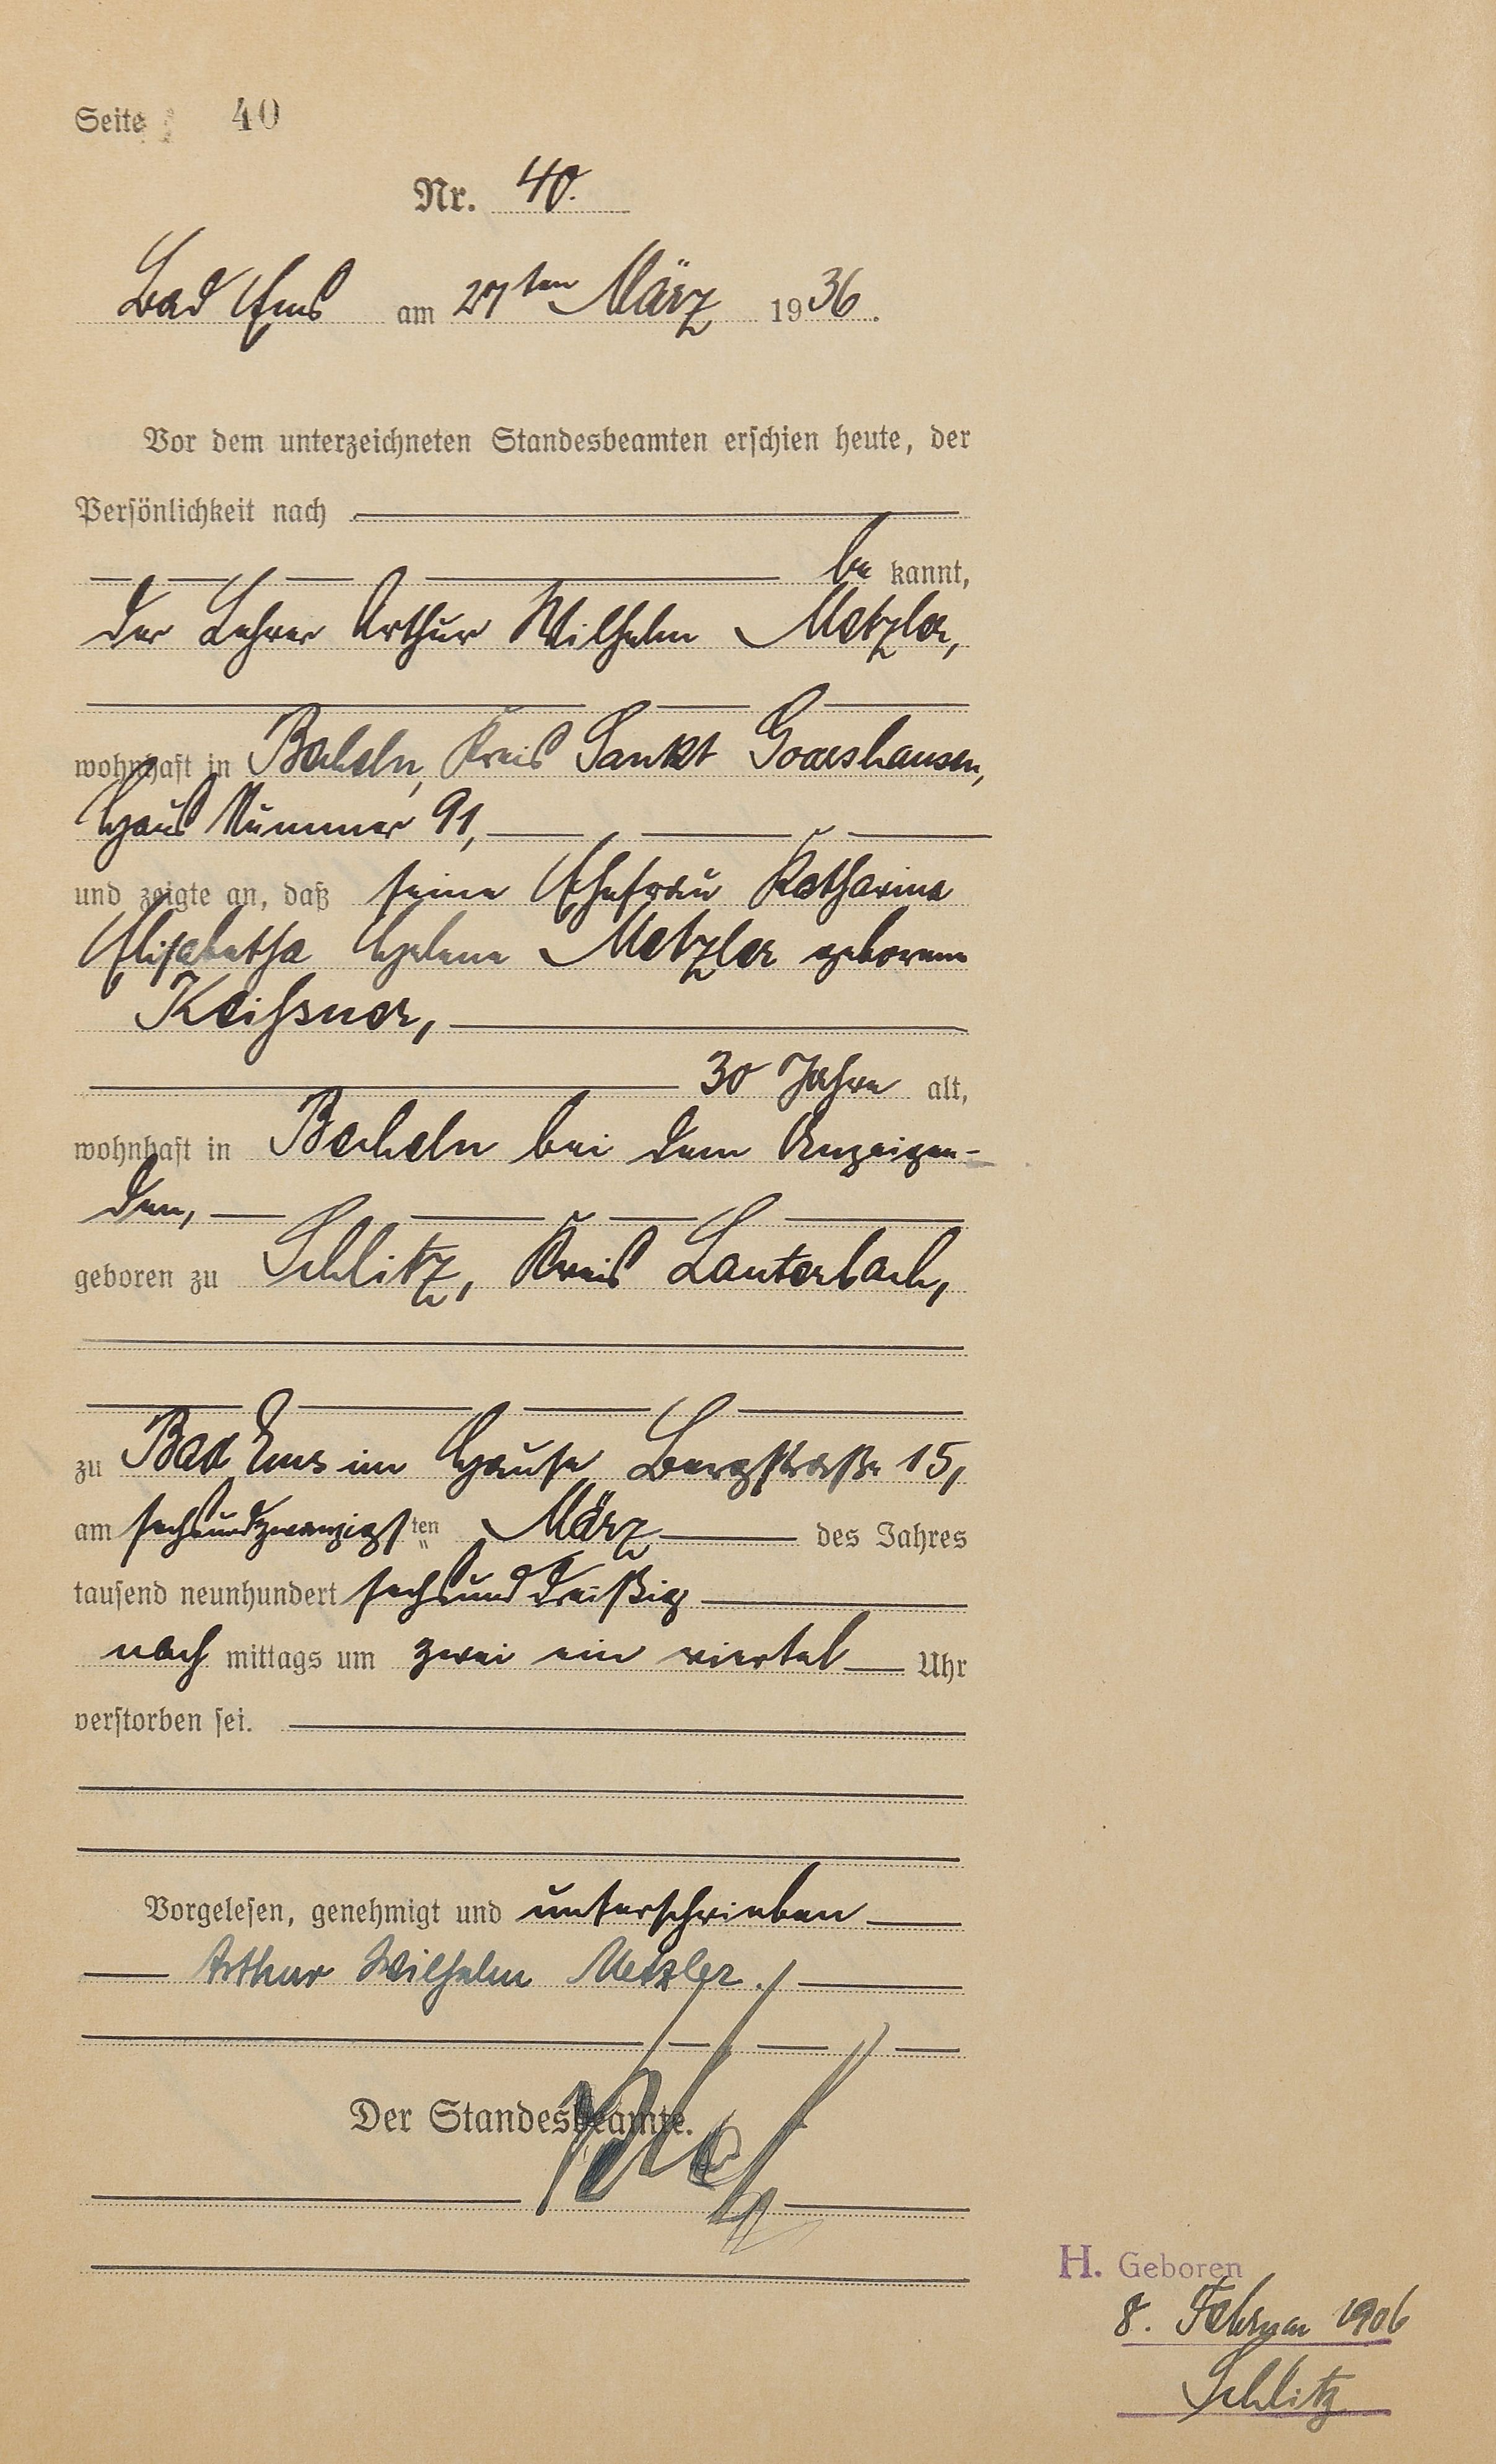 Seite 40
Nr. 40.
Bad Ems am 27ten März 1936.
Vor dem unterzeichneten Standesbeamten erschien heute, der
Persönlichkeit nach
be kannt,
der Lehrer Arthur Wilhelm Metzler,
wohnhaft in Becheln, Kreis Sankt Goarshausen,
Haus Nummer 91,
und zeigte an, daß seine Ehefrau Katharina
Elisabetha Helene Metzler geborene
Keißner,
30 Jahre alt,
wohnhaft in Becheln bei dem Anzeigen-
den,
geboren zu Schlitz, Kreis Lauterbach,
zu Bad Ems im Hause Bergstraße 15,
am sechsundzwanzigsten März des Jahres
tausend neunhundert sechsunddreißig
nach mittags um zwei ein viertel Uhr
verstorben sei.
Vorgelesen, genehmigt und unterschrieben
Arthur Wilhelm Metzler.
Der Standesbeamte.
H. Geboren
8. Februar 1906
Schlitz